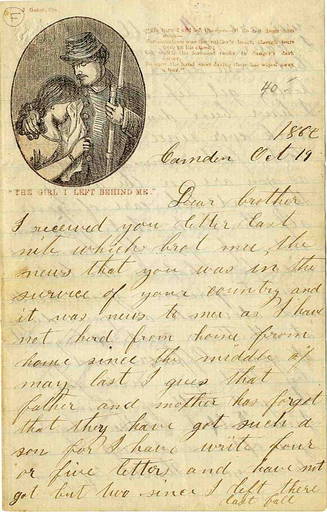 40
1862
Camden Oct 19
"THE GIRL I LEFT BEHIND ME."
Dear brother
I received you letter last
nite which brot mee the
news that you was in the
survice of your country and
it was news to me as I have
not herd from home from
home since the middle of
may last I gues that
father and mother has forgot
that they have got such a
son for I have write four
or five letters and have not
got but two since I left there
last fall